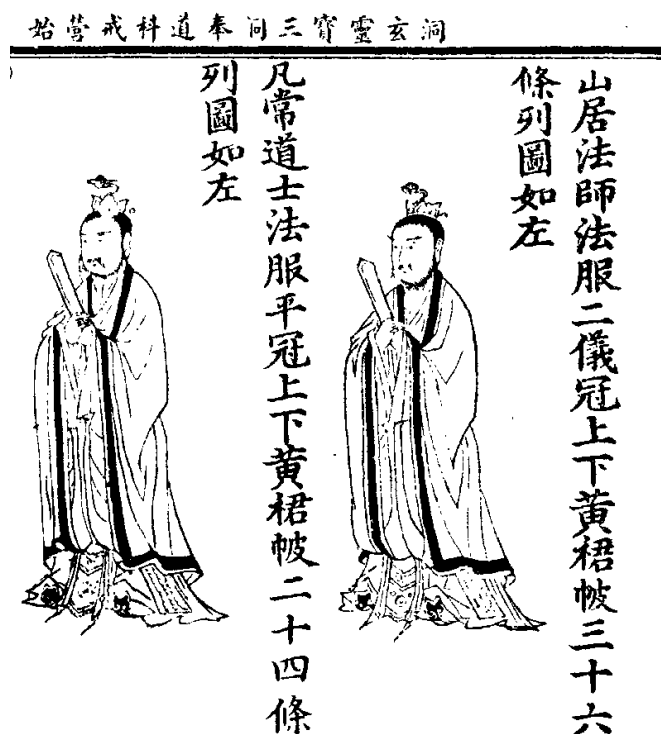 洞玄靈寶三洞奉道科戒營始
山居法師法服二儀冠上下黃裙帔三十六
條列圖如左
凡常道士法服平冠上下黃裙帔二十四條
列圖如左